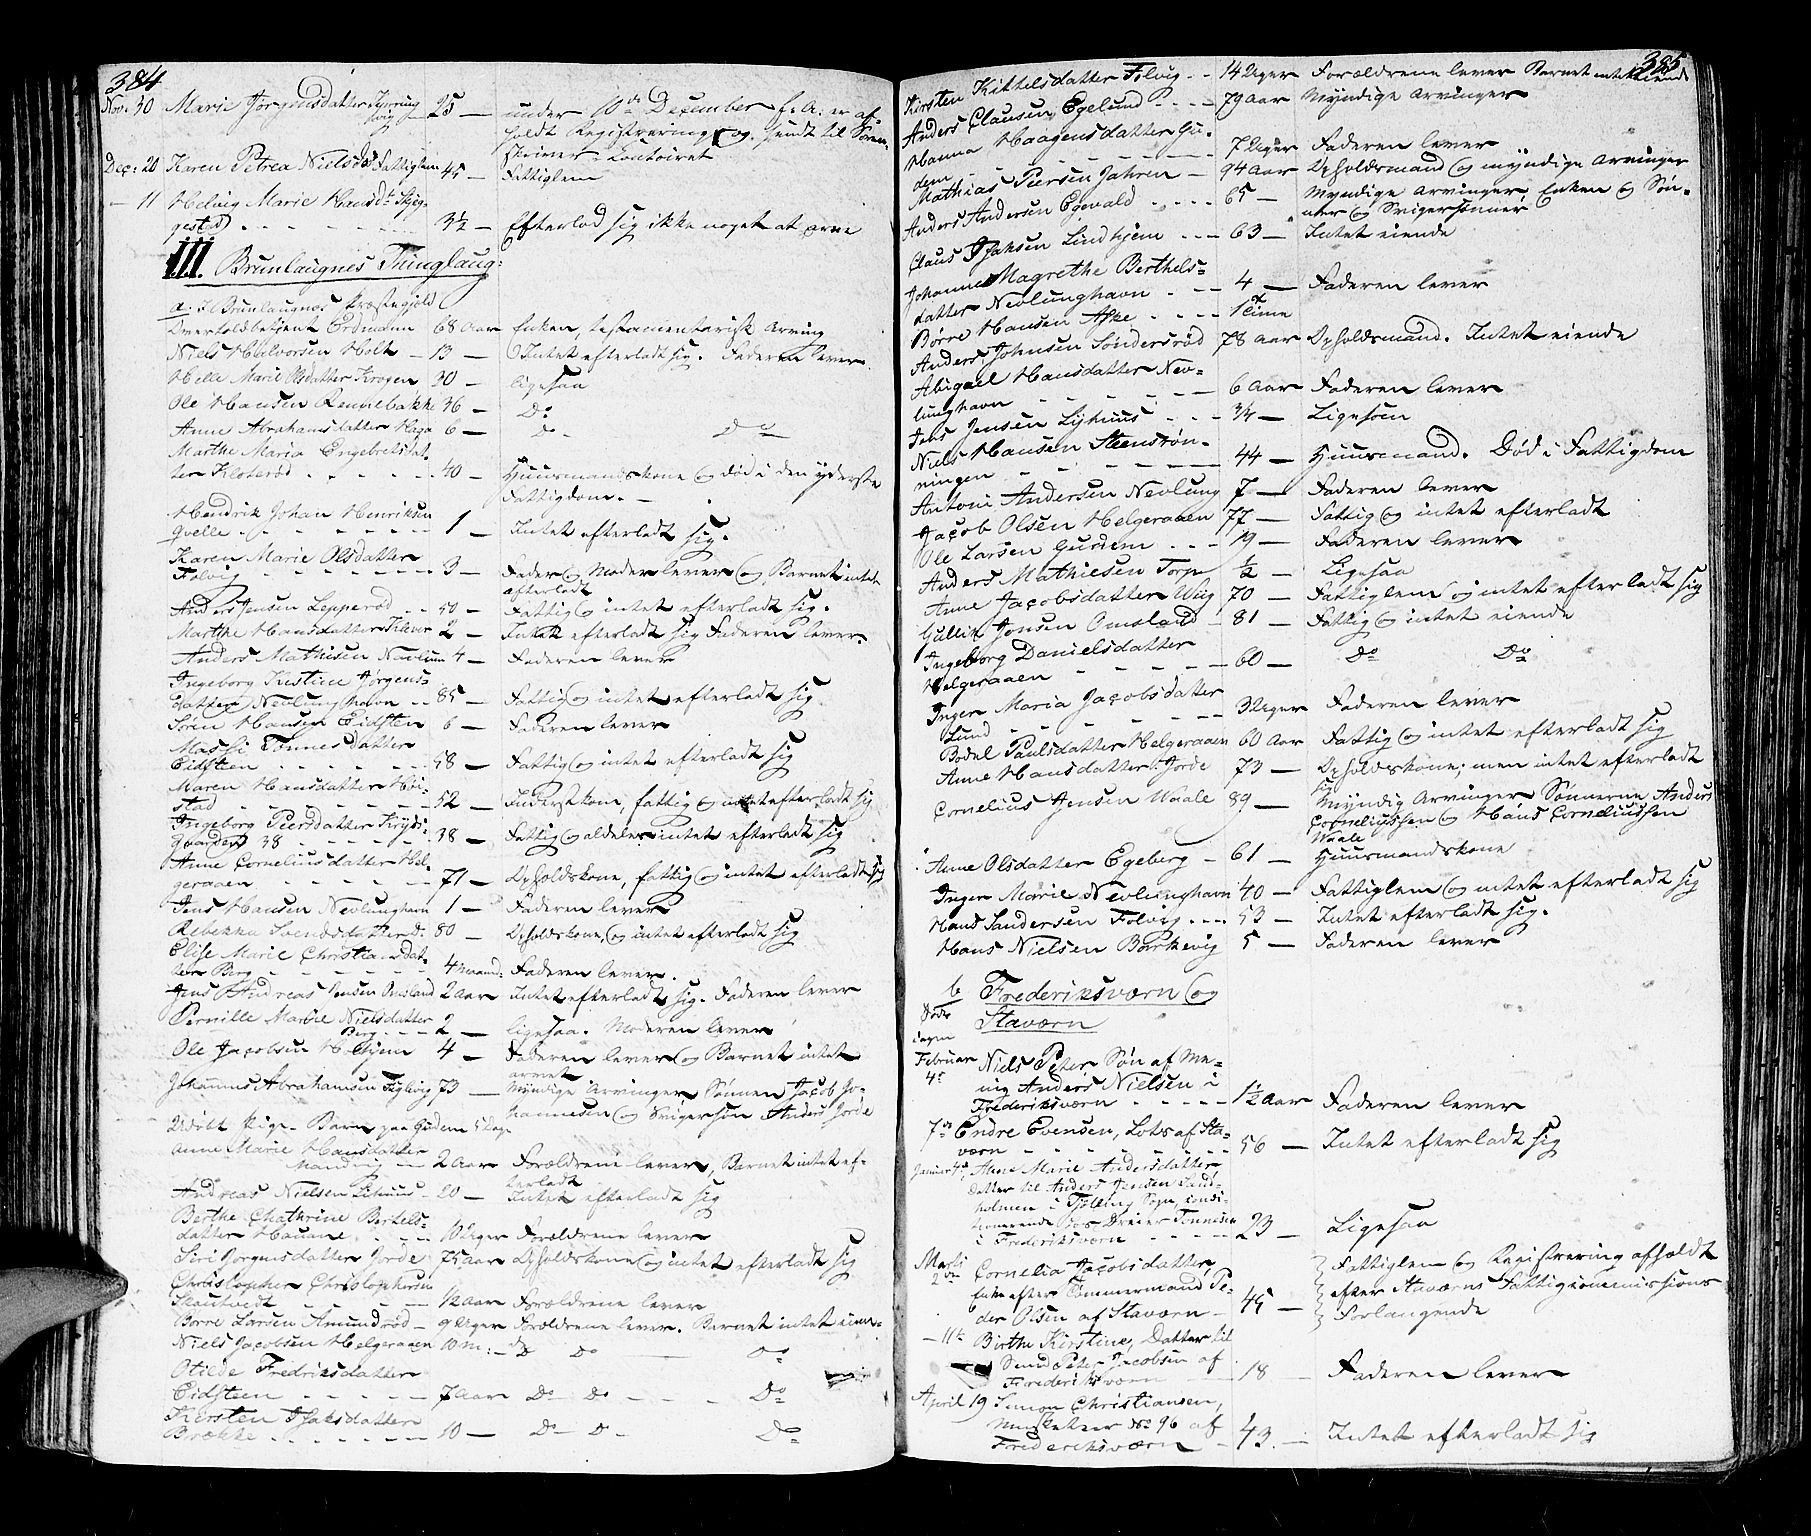 384
Nov: 30 Marie Jørgensdatter 25 — under 10de December f. A. er af-
holdt Registrering og sendt til Soren-
skriver-Contoiret
Dec: 20 Karen Petrea Nielsd: Fattiglem 45 — Fattiglem
— 11 Helvig Marie Hansdr Skjeg-
gestad 3½ — Efterlod sig ikke noget at arve
III. Brunlaugnes Tinglaug:
a. I Brunlaugnes Præstegjeld
Overtoldbetjent Erdmann 68 Aar Enken, testamentarisk Arving
Niels Helvorsen Holt — 13 — Intet efterladt sig. Faderen lever
Helle Marie Olsdatter Krogen 30 — ligesaa
Ole Hansen Rennebakke 36 — Do
Anne Abrahamsdatter Haga 6 — Do Do
Marthe Maria Engebretsdat-
ter Kloterød 40 — Huusmandskone og død i den yderste
Fattigdom.
Hendrik Johan Henriksen
Qvelle 1 — Intet efterladt sig.
Karen Marie Olsdatter
Folvig 3 — Fader og Moder lever og Barnet intet
efterladt
Anders Jensen Lepperød 50 — Fattig og intet efterladt sig.
Marthe Hansdatter Klever 2 — Intet efterladt sig Faderen lever
Anders Mathisen Navlum 4 — Faderen lever
Ingeborg Kirstine Jørgens-
datter Nevlunghavn 85 — Fattig og intet efterladt sig
Søren Hansen Eidsten 6 — Faderen lever
Massi Tønnesdatter
Eidsteen 58 — Fattig og intet efterladt sig
Maren Hansdatter Høi-
stad 52 — Inderstkone, fattig og intet efterladt sig
Ingeborg Peersdatter Kryds-
gaarden 38 38 — Fattig og aldeles intet efterladt sig
Anne Corneliusdatter Hel-
geraaen 71 — Opholdskone, fattig og intet efterladt sig
Jens Hansen Nevlunghavn 1 — Faderen lever
Rebekka Svendsdatter 80 — Opholdskone, og intet efterladt sig
Elise Marie Christiansdat-
ter Berg 4 Maand: Faderen lever.
Jens Andreas Jensen Omsland 2 Aar Intet efterladt sig. Faderen lever
Pernille Marie Nielsdatter
Berg 2 — ligesaa. Moderen lever
Ole Jacobsen Holtjem 4 — Faderen lever og Barnet intet
arvet
Johannes Abrahamsen 73 — Myndige Arvinger Sønnen Jacob Jo-
hannesen og Svigersøn Anders Jorde
Udøbt Pige-Barn paa Gudem 5 Dage
Anne Marie Hansdatter
Manvig 2 Aar Forældrene lever, Barnet intet ef-
terladt
Andreas Nielsen 20 — Intet efterladt sig
Berthe Chathrine Bertels-
datter Hauane 10 Uger Forældrene lever
Siri Jørgensdatter Jorde 75 Aar Opholdskone og intet efterladt sig
Christopher Christophersen
Skautvedt ½ Aar Forældrene lever
Børre Larsen Amundrød 9 Uger Forældrene lever. Barnet intet eien-
Niels Jacobsen Helgeraaen 10 m: D Do Do
Otilde Fredriksdatter
Eidsteen 7 Aar Do Do Do
Kirsten Isaksdatter
Brække 10 — Do D Do
385
Kirsten Kittelsdatter Folvig 14 Uger Forældrene lever Barnet intet eiende
Anders Clausen Egelund 79 Aar Myndige Arvinger
Hanna Haagensdatter Gu-
dem 7 Uger Faderen lever
Mathias Peersen Jahren 94 Aar Opholdsmand og myndige Arvinger
Anders Andersen Egevald 65 — Myndige Arvinger Enken og Søn-
ner og Svigersønner
Claus Isaksen Lindhjem 63 — Intet eiende
Johanne Magrethe Berthels-
datter Nevlunghavn 4 — Faderen lever
Børre Hansen Aske 1 Time
Anders Johnsen Søndersrød 78 Aar Opholdsmand. Intet eiende
Abigael Hansdatter Nev-
lunghavn 6 Aar Faderen lever
Jens Jensen Lyhuus 3/4 — Ligesom
Niels Hansen Steensrøn-
ningen 44 — Huusmand. Død i Fattigdom
Antoni Andersen Nevlung 7 — Faderen lever
Jacob Olsen Helgeraaen 77 — Fattig og intet efterladt
Ole Larsen Gurdem 19 — Faderen lever
Anders Mathiesen Torp ½ — Ligesaa
Anne Jacobsdatter Wiig 70 — Fattiglem og intet efterladt sig
Gullik Jonsen Omsland 81 — Fattig og intet eiende
Ingeborg Danielsdatter
Helgeraaen 60 — Do Do
Inger Maria Jacobsdatter
Lund 3 Uger Faderen lever
Bodel Paulsdatter Helgeraaen 60 Aar Fattig og intet efterladt sig
Anne Hansdatter Jorde 73 — Opholdskone; men intet efterladt
sig
Cornelius Jensen Waale 89 — Myndig Arvinger Sønnerne Anders
Corneliussen og Hans Corneliussen
Waale
Anne Olsdatter Egeberg 61 — Huusmandskone
Inger Marie Nevlunghavn 40 — Fattiglem og intet efterladt sig
Hans Sandersen Folvig 53 — Intet efterladt sig.
Hans Nielsen Barkevig 5 — Faderen lever
b Frederiksværn og
Døds Staværn
dagen
Februar Niels Peter Søn af Me-
4de nig Anders Nielsen i
Frederiksværn 1½ Aar Faderen lever
7de Endre Evensen, Lots af Sta-
værn 56 — Intet efterladt sig
Januar 4de Anne Marie Andersdatter
Datter til Anders Jensen Sand-
holmen i Tjølling Sogn, condi-
tionerende hos Dreier Tønnesen
i Frederiksværn 23 — Ligesaa
Marti Cornelia Jacobsdatter, Fattiglem og Registrering afholdt
2den Enke efter Tømmermand Pe- efter Staværns Fattigcommissions
der Olsen af Staværn 45 — Forlangende
— 11te Birthe Kirstine, Datter til
Svend Peter Jacobsen af
Frederiksværn 18 — Faderen lever
April 19 Simon Christiansen,
Musketeer No 96 af
Frederiksværn 43 — Intet efterladt sig